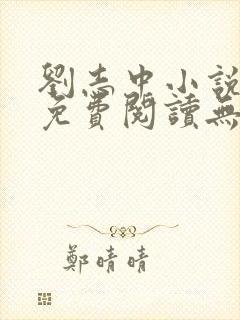 劉志中小說
免費閱讀無
鄭晴晴